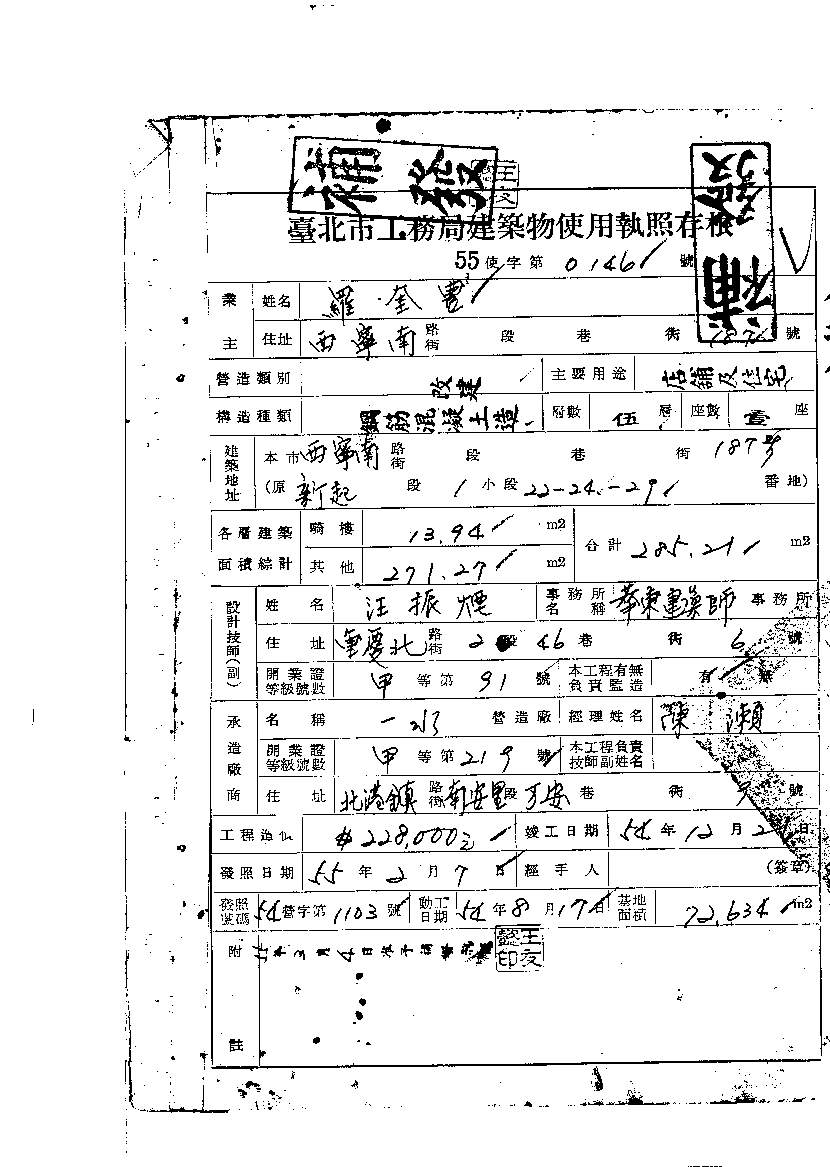 補發
補發
臺北市工務局建築物使用執照存根
55使字第 0146 號
業主 姓名 羅奎豊
住址 西寧南 路街 段 巷 街 187 號
營造類別 改建 主要用途 店舖及住宅
構造種類 鋼筋混凝土造 層數 伍層 座數 壹座
建築地址 本市西寧南 路街 段 巷 街 187號
(原 新起 段 1 小段 22-24.-29 番地)
各層建築面積綜計 騎樓 13.94 m2 合計 285.21 m2
其他 271.27 m2
設計技師(副) 姓名 汪振煙 事務所名稱 華東建築師 事務所
住址 重慶北 路街 2 段 46 巷 街 6 號
開業證等級號數 甲 等第 91 號 本工程有無負責監造 有 無
承造廠商 名稱 一 營造廠 經理姓名 陳 瀨
開業證等級號數 甲 等第 219 號 本工程負責技師副姓名
住址 北港鎮 路街 南安里 巷 街 號
工程造價 $228,000元 竣工日期 54年12月2 日
發照日期 55年2月7日 經手人 (簽章)
發照號碼 54營字第1103號 動工日期 54年8月17日 基地面積 72,634 m2
附註 月4日准予
王友懿印